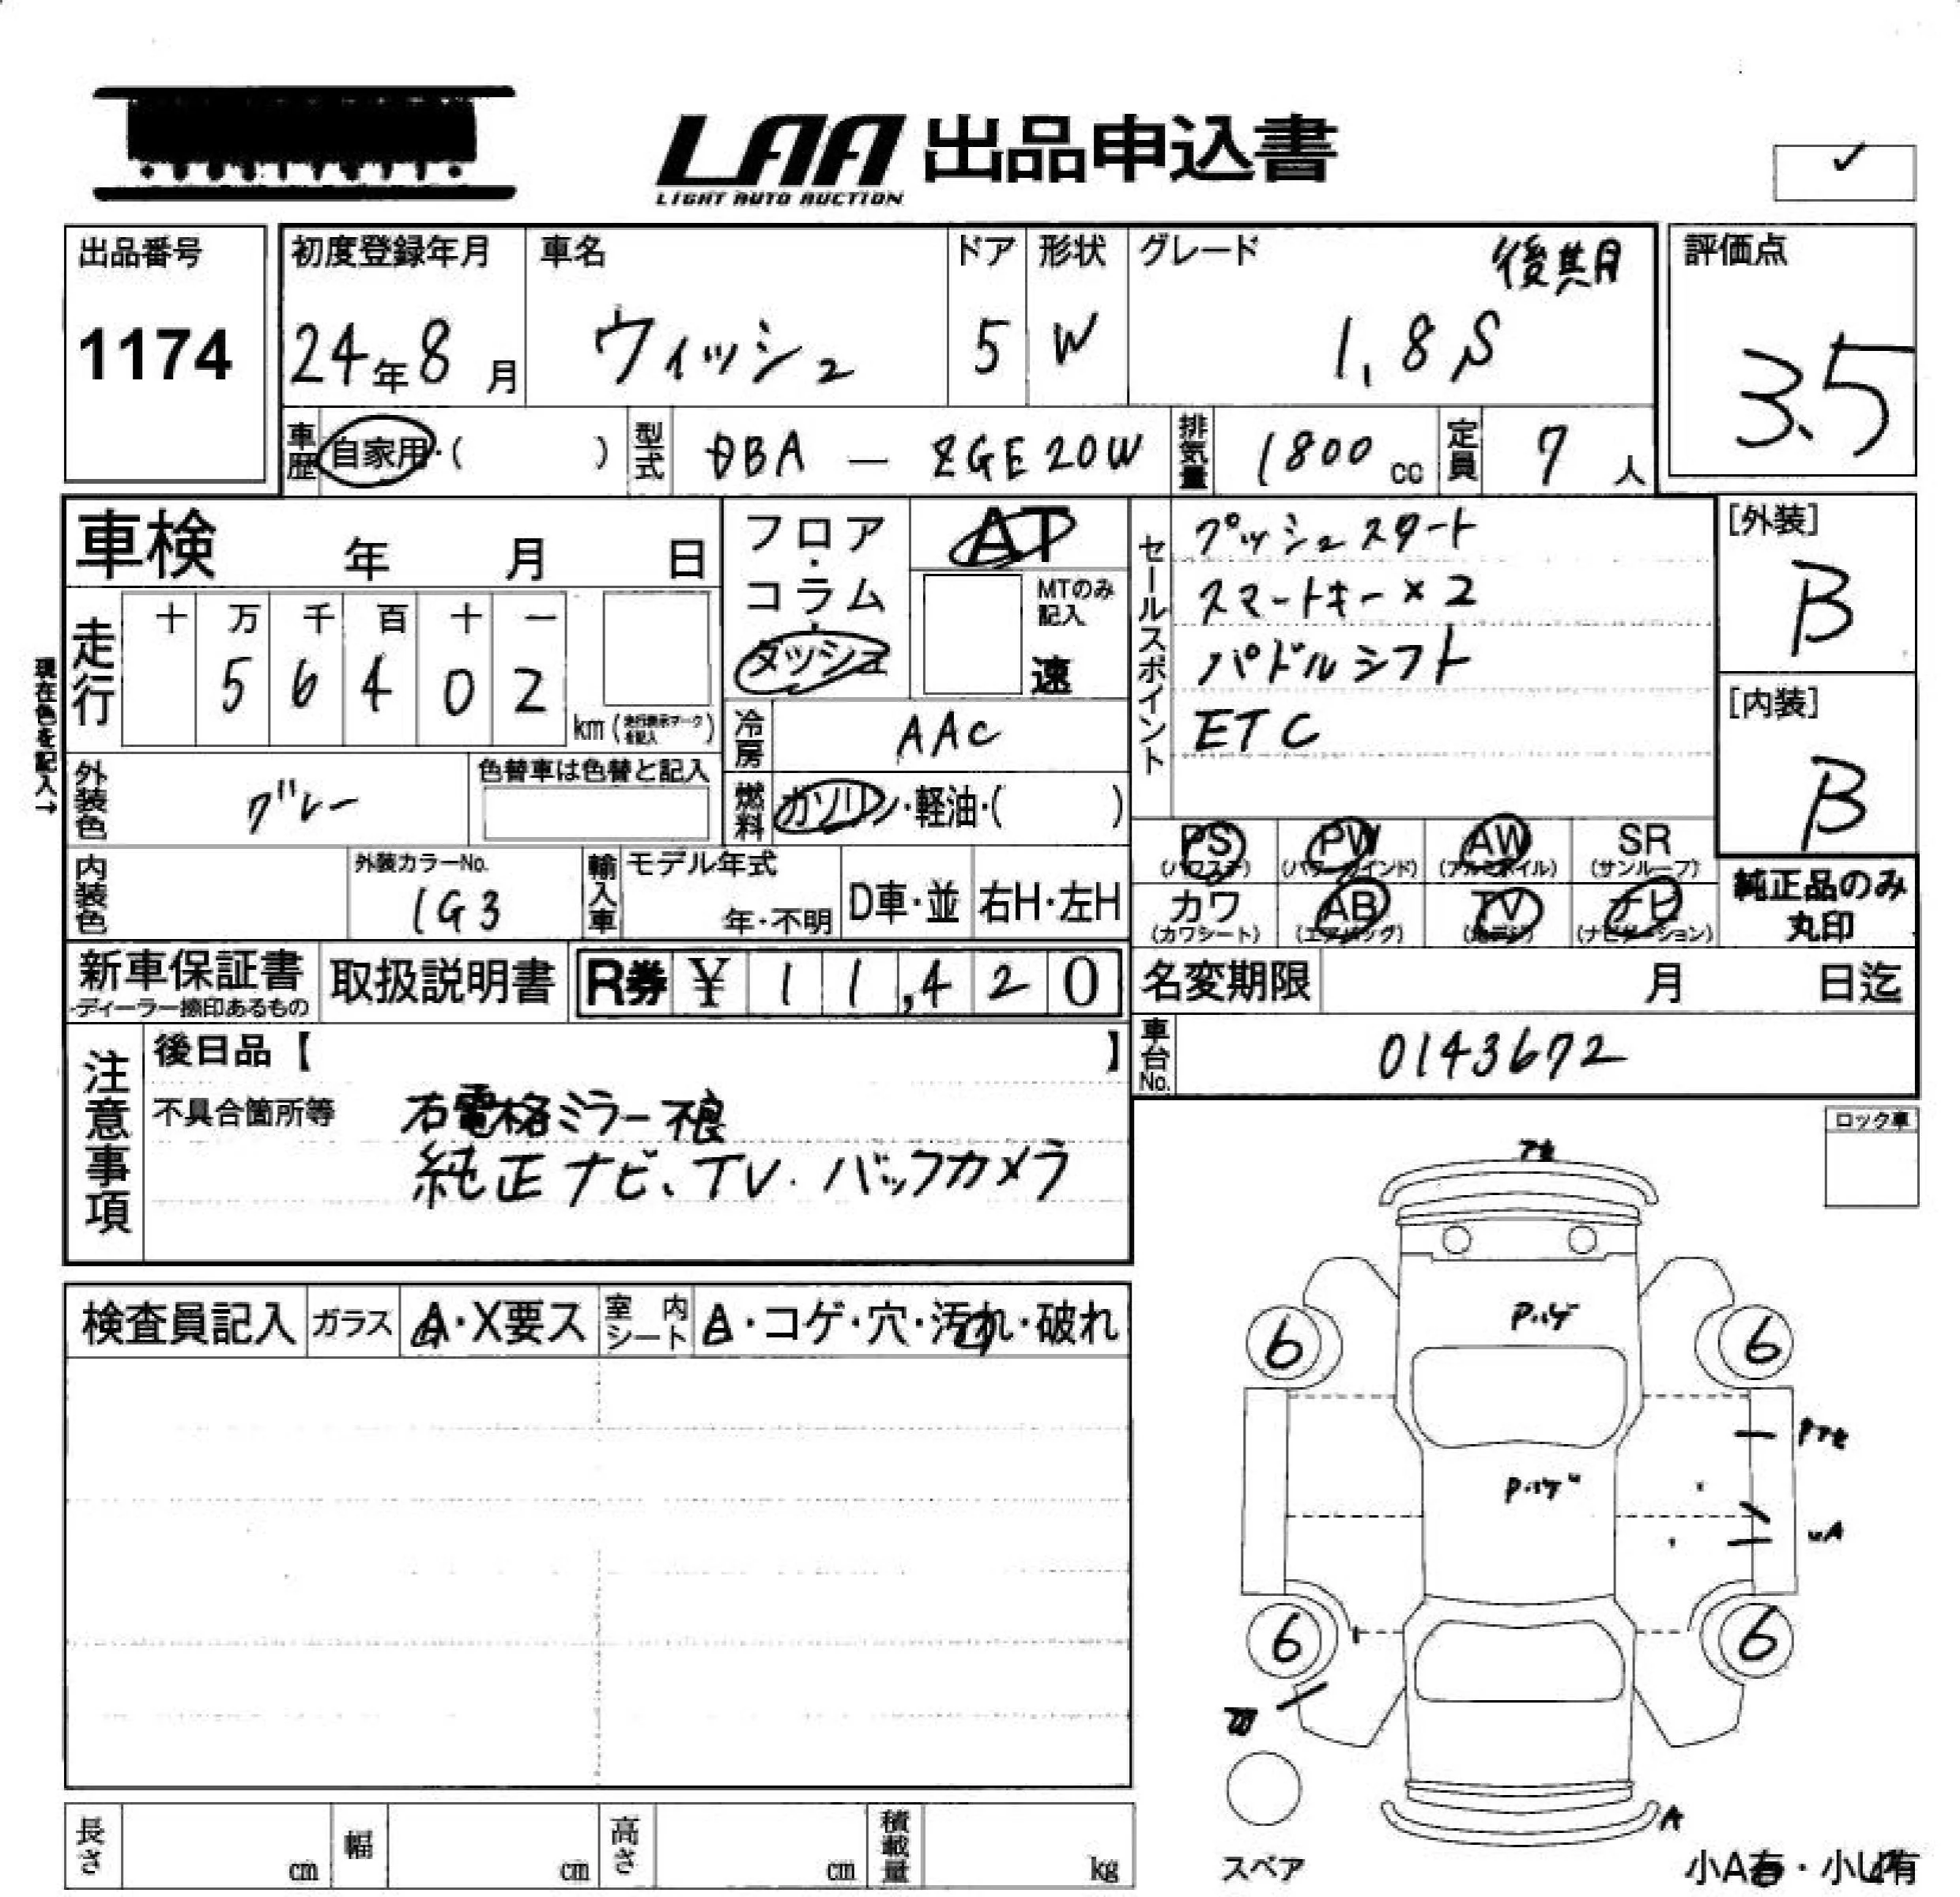 LAA 出品申込書
LIGHT AUTO AUCTION
✓
出品番号
1174
初度登録年月
24年8月
車名
ウィッシュ
ドア
5
形状
W
グレード
後期
1.8S
評価点
3.5
車歴
自家用・( )
型式
DBA - ZGE20W
排気量
1800cc
定員
7人
車検 年 月 日
フロア・コラム・ダッシュ
AT
MTのみ記入
速
セールスポイント
プッシュスタート
スマートキー×2
パドルシフト
ETC
[外装]
B
[内装]
B
現在色を記入→
走行
十 万 千 百 十 一
5 6 4 0 2
km (走行表示マークを記入)
冷房
AAC
外装色
グレー
色替車は色替と記入
燃料
ガソリン・軽油・( )
PS (パワステ)
PW (パワーウインド)
AW (アルミホイル)
SR (サンルーフ)
カワ (カワシート)
AB (エアバッグ)
TV
ナビ (ナビゲーション)
純正品のみ丸印
内装色
外装カラーNo.
1G3
輸入車
モデル年式
年・不明
D車・並
右H・左H
新車保証書
ディーラー捺印あるもの
取扱説明書
R券 ¥ 11,420
名変期限 月 日迄
車台No.
0143672
注意事項
後日品【 】
不具合箇所等 右電格ミラー不良
純正ナビ、TV. バックカメラ
ロック車
検査員記入
ガラス
A・X要ス
室内シート
A・コゲ・穴・汚れ・破れ
P.ハゲ
6 6
P.ハゲ
A
6 6
スペア
A
小A有・小U有
長さ cm
幅 cm
高さ cm
積載量 kg